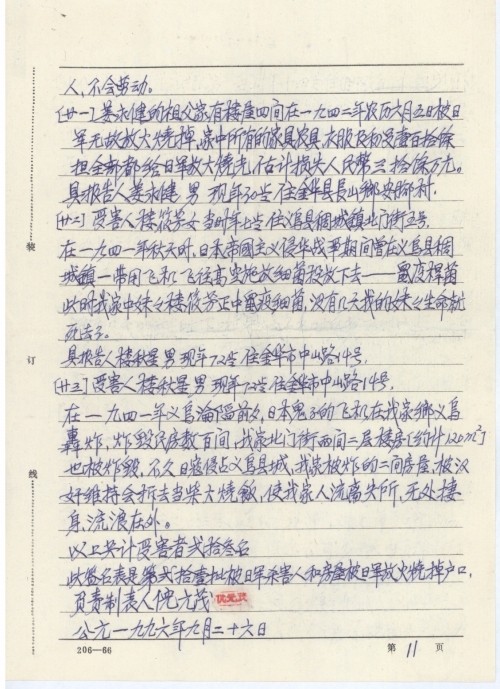 人,不会劳动。
[廿一]姜永健的祖父家有楼屋四间在一九四二年农历六月五日被日
军无故放火烧掉,家中所有的家具农具衣服及粮食壹百拾馀
担全部都给日军放火烧光,估计损失人民币三拾馀万元。
具报告人姜永健 男 现年30岁 住金华县长山乡 村,
[廿二]受害人楼筱芳女当时年七岁 住义乌县稠城镇北门街五号,
在一九四一年秋天时,日本帝国主义侵华战争期间曾在义乌县稠
城镇一带用飞机飞往高空施放细菌投放下去——鼠疫桿菌
此时我家中妹々楼筱芳正中鼠疫细菌,没有几天我的妹々生命就
死去了。
具报告人楼秋星男 现年72岁 住金华市中山路14号,
[廿三]受害人楼秋星男 现年72岁 住金华市中山路14号,
在一九四一年义乌沦陷前夕,日本鬼子的飞机在我家乡义乌
轰炸,炸毁民房数百间,我家北门街西间二层楼房[约计120m²]
也被炸毁,不久日寇侵占义乌县城,我家被炸的二间房屋,被汉
奸维持会拆去当柴火烧饭,使我家人流离失所,无处棲
身,流浪在外。
以上共计受害者贰拾叁名
此签名表是第贰拾壹批被日军杀害人和房屋被日军放火烧掉户口,
负责制表人倪六茂
公元一九九六年九月二十六日
装
订
线
206—66
第 11 页